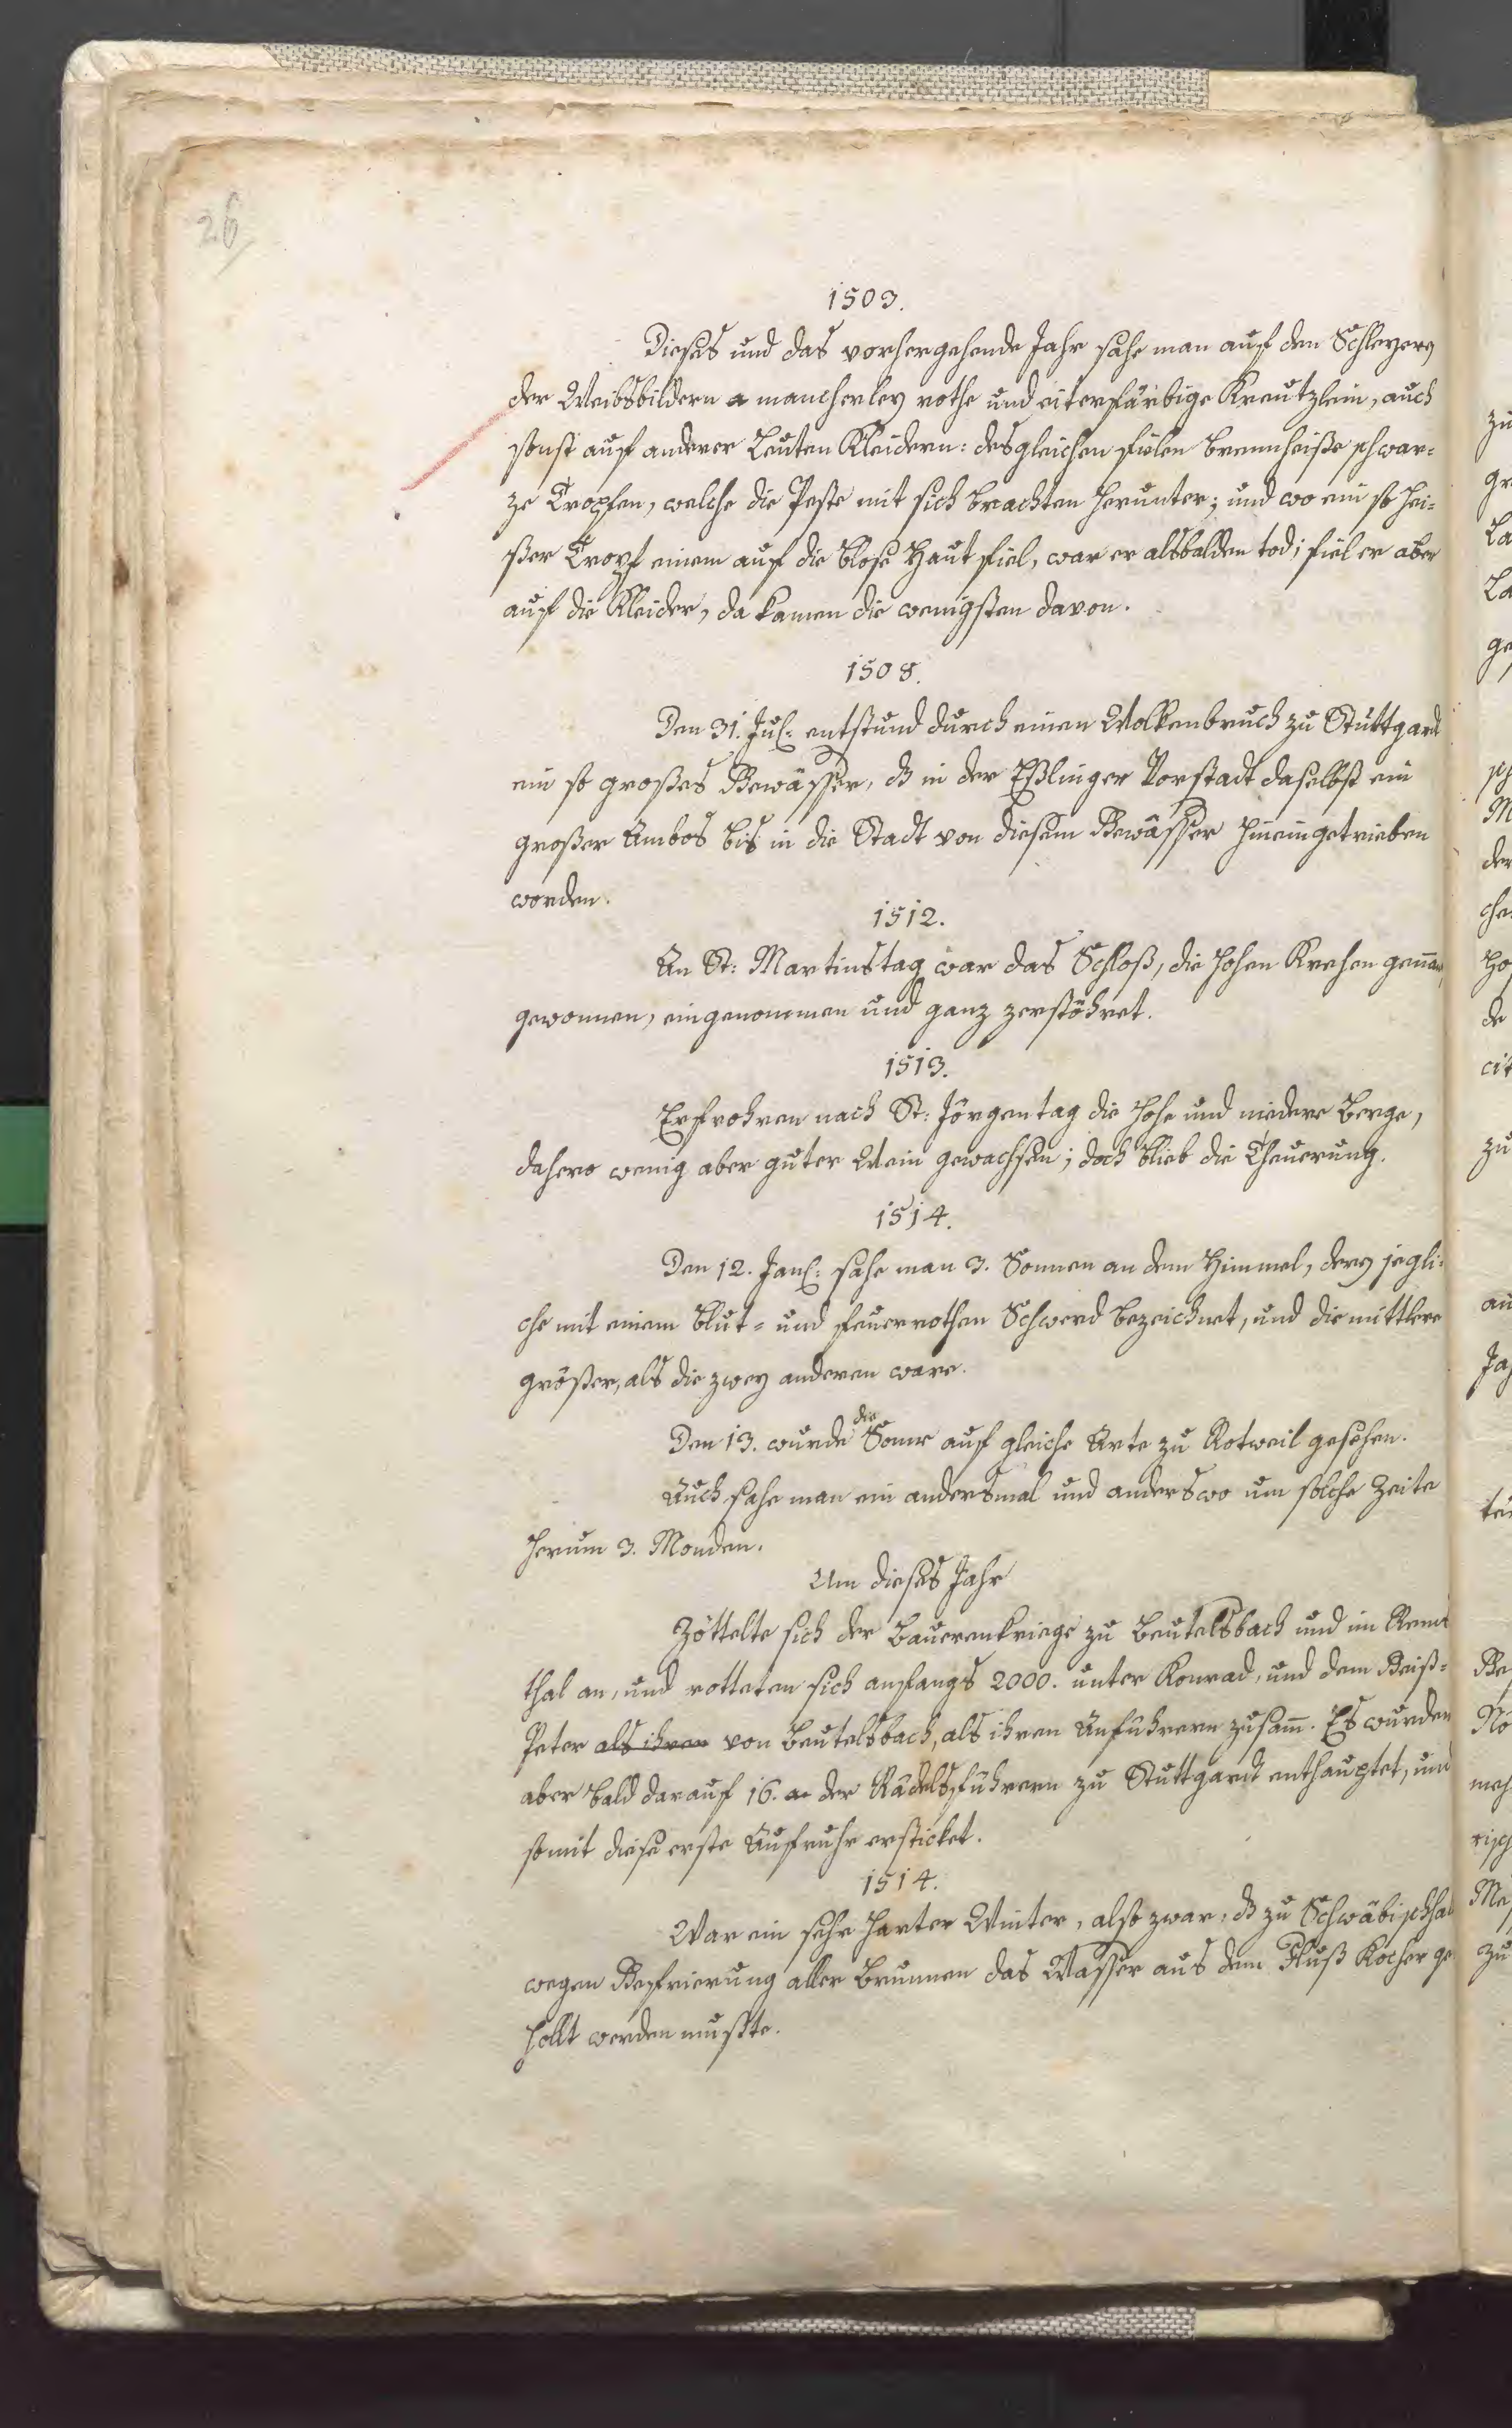 26
1503.
Dieses und das vorhergehende Jahr sahe man auf den Schleyern
der Weibsbildern mancherley rothe und eiterfärbige Kreutzlein, auch
sonst auf anderer Leuten Kleidern: desgleichen fielen brennheiße schwar=
ze Tropfen, welche die Peste mit sich brachten herunter; und wo ein so hei=
ßer Tropf einem auf die blose Haut fiel, war er alsbalden tod; fiel er aber
auf die Kleider, da kamen die wenigsten davon.
1508.
Den 31. Jul: entstund durch einen Wolkenbruch zu Stuttgard
ein so großes Gewässer, dß in der Eßlinger Vorstadt daselbst ein
großer Ambos bis in die Stadt von diesem Gewässer hineingetrieben
worden.
1512.
An St: Martinstag war das Schloß, die hohen Krehen genan̄t,
gewonnen, eingenommen und ganz zerstöhret.
1513.
Erfrohren nach St: Jörgentag die hohe und niedere Berge,
dahero wenig aber guter Wein gewachsen; doch blieb die Theuerung.
1514.
Den 12. Jan: sahe man 3. Sonnen an dem Himmel, dern jegli=
che mit einem blut= und feuerrothen Schwerd bezeichnet, und die mittlere
größer, als die zwey anderen ware.
Den 13. wurde die Sonne auf gleiche Arte zu Rotweil gesehen.
Auch sahe man ein andersmal und anderswo um solche Zeite
herum 3. Monden.
Um dieses Jahr
Zöttelte sich der Bauerenkriege zu Beutelsbach und im Rems
thal an, und rotteten sich anfangs 2000. unter Konrad, und dem Geiß=
Peter als ihren von Beutelsbach, als ihren Anführern zusam̄. Es wurden
aber bald darauf 16. der Rädelsführern zu Stuttgardt enthauptet, und
somit diese erste Aufruhr ersticket.
1514.
War ein sehr harter Winter, also zwar: dß zu Schwäbischhal
wegen Gefrierung aller Brunnen das Wasser aus dem Fluß Kocher ge
hollt werden mußte.